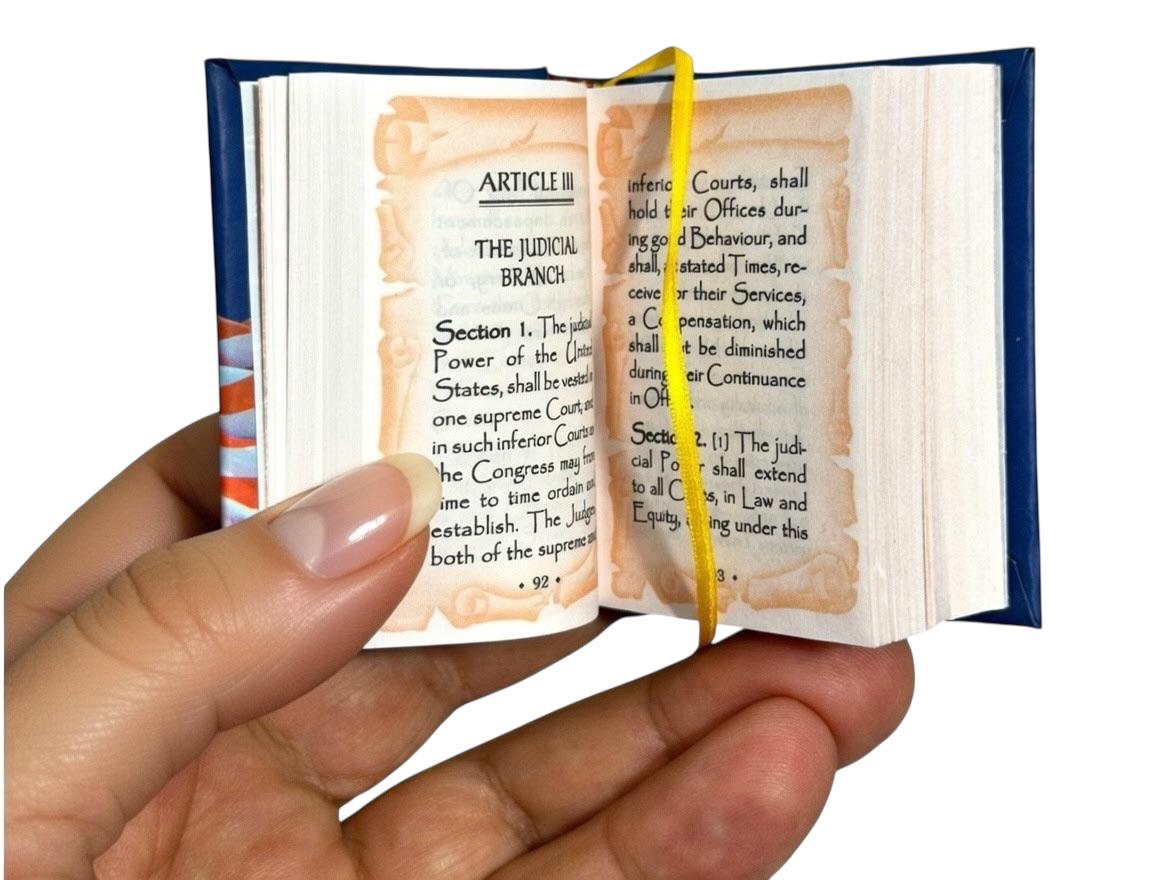 ARTICLE III
THE JUDICIAL
BRANCH
Section 1. The judicial
Power of the United
States, shall be vested in
one supreme Court, and
in such inferior Courts as
the Congress may from
time to time ordain and
establish. The Judges
both of the supreme and
• 92 •
inferior Courts, shall
hold their Offices dur-
ing good Behaviour, and
shall, at stated Times, re-
ceive for their Services,
a Compensation, which
shall not be diminished
during their Continuance
in Office.
Section 2. [1] The judi-
cial Power shall extend
to all Cases, in Law and
Equity, arising under this
93 •